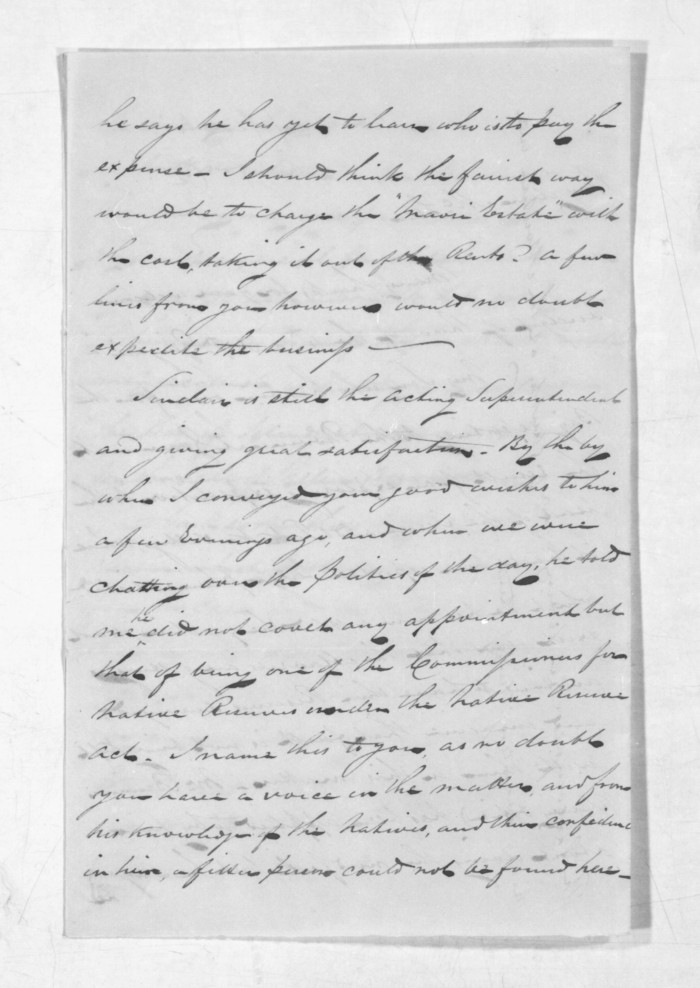 he says he has yet to learn who is to pay the
expense — I should think the fairest way
would be to charge the "Maori Estate" with
the cost, taking it out of the Rents? a few
lines from you however would no doubt
expedite the business —
Sinclair is still the acting Superintendent
and giving great satisfaction. By the by
when I conveyed your good wishes to him
a few Evenings ago, and when we were
chatting over the Politics of the day, he told
me he did not covet any appointment but
that of being one of the Commissioners for
Native Reserves under the Native Reserve
act. I name this to you, as no doubt
you have a voice in the matter, and from
his knowledge of the Natives, and their confidence
in him, a fitter person could not be found here —